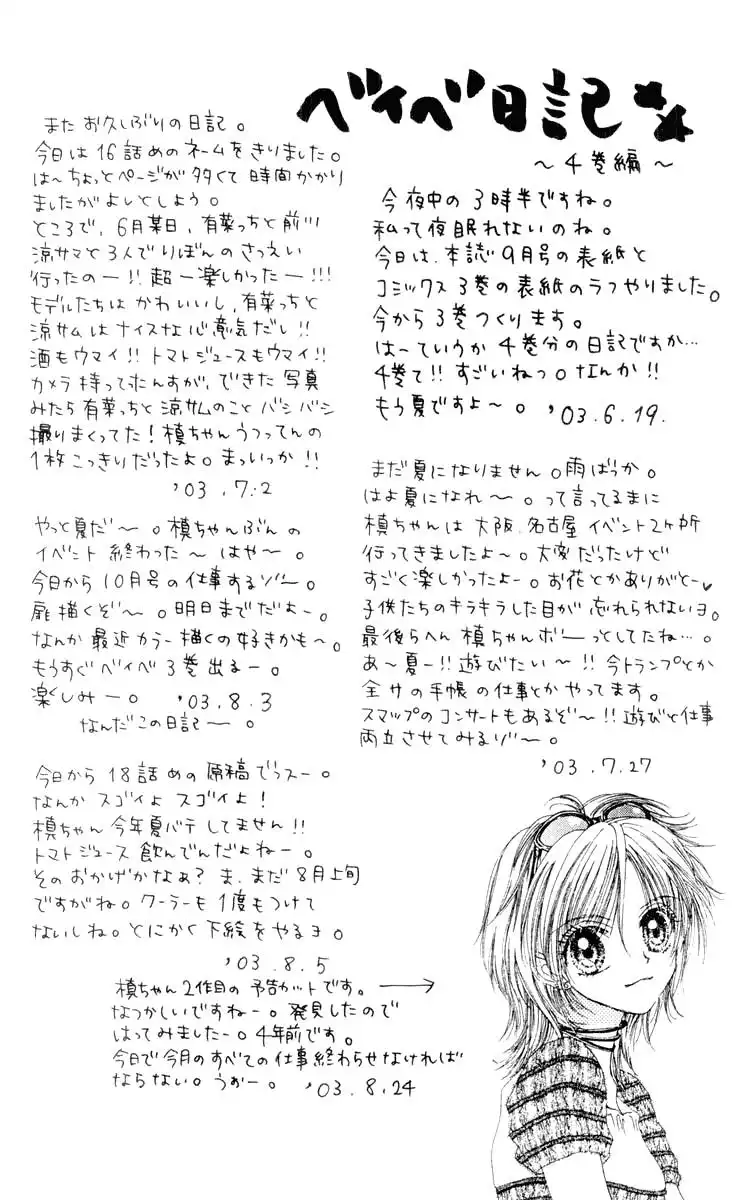 ベイベ日記
～4巻編～
今夜中の3時半ですね。
私って夜眠れないのね。
今日は、本誌9月号の表紙と
コミックス3巻の表紙のラフやりました。
今から3巻つくります。
はーていうか4巻分の日記ですか…
4巻て!!すごいねっ。なんか!!
もう夏ですよ～。'03.6.19.
また お久しぶりの日記。
今日は16話めのネームをきりました。
は～ちょっとページが多くて時間かかり
ましたがよしとしよう。
ところで、6月某日、有菜っちと前川
涼サマと3人でりぼんのさつえい
行ったのー!!超ー楽しかったー!!!
モデルたちはかわいいし、有菜っちと
涼サムはナイスな心意気だし!!
酒もウマイ!!トマトジュースもウマイ!!
カメラ持ってたんすが、できた写真
みたら有菜っちと涼サムのことバシバシ
撮りまくってた!槙ちゃんうつってんの
1枚こっきりだったよ。まっいっか!!
'03.7.2
まだ夏になりません。雨ばっか。
はよ夏になれ～。って言ってるまに
槙ちゃんは大阪、名古屋イベント2ヶ所
行ってきましたよ～。大変だったけど
すごく楽しかったよー。お花とかありがとー♥
子供たちのキラキラした目が忘れられないヨ。
最後らへん槙ちゃんボーっとしてたね…。
あ～夏ー!!遊びたい～!!今トランプとか
全サの手帳の仕事とかやってます。
スマップのコンサートもあるぞ～!!遊びと仕事
両立させてみるゾ～。
'03.7.27
やっと夏だ～。槙ちゃんぶんの
イベント終わった～はや～。
今日から10月号の仕事するゾ～。
扉描くぞ～。明日までだよー。
なんか最近カラー描くの好きかも～。
もうすぐベイベ3巻出るー。
楽しみー。'03.8.3
なんだこの日記ー。
今日から18話めの原稿でっスー。
なんかスゴイよスゴイよ!
槙ちゃん今年夏バテしてません!!
トマトジュース飲んでんだよねー。
そのおかげかなぁ?ま、まだ8月上旬
ですがね。クーラーも1度もつけて
ないしね。とにかく下絵をやるヨ。
'03.8.5
槙ちゃん2作目の予告カットです。→
なつかしいですねー。発見したので
はってみましたー。4年前です。
今日で今月のすべての仕事終わらせなければ
ならない。うぉー。'03.8.24